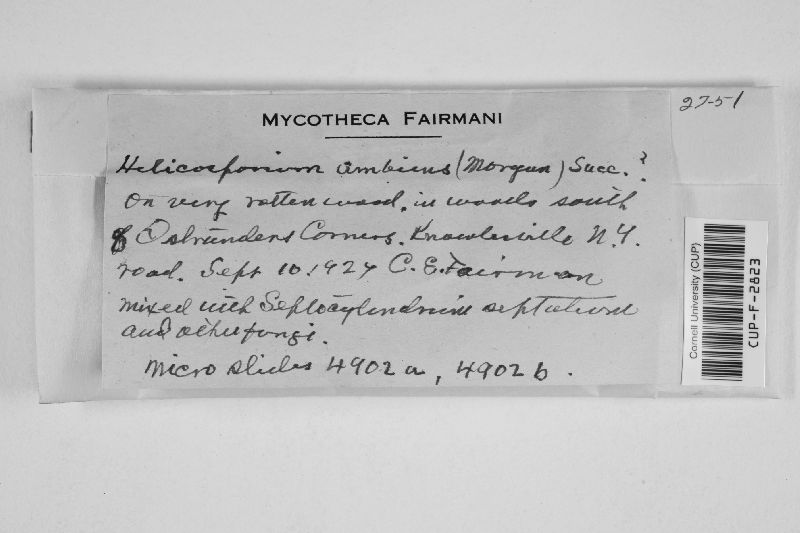 MYCOTHECA FAIRMANI
27-51
Helicosporium ambiens (Morgan) Sacc. ?
On very rotten wood, in woods south
of Ostranders Corners. Knowlesville N.Y.
road. Sept 10, 1924 C. E. Fairman
mixed with Septocylindrium septatum
and other fungi.
Micro slides 4902 a, 4902 b.
Cornell University (CUP)
CUP-F-2823